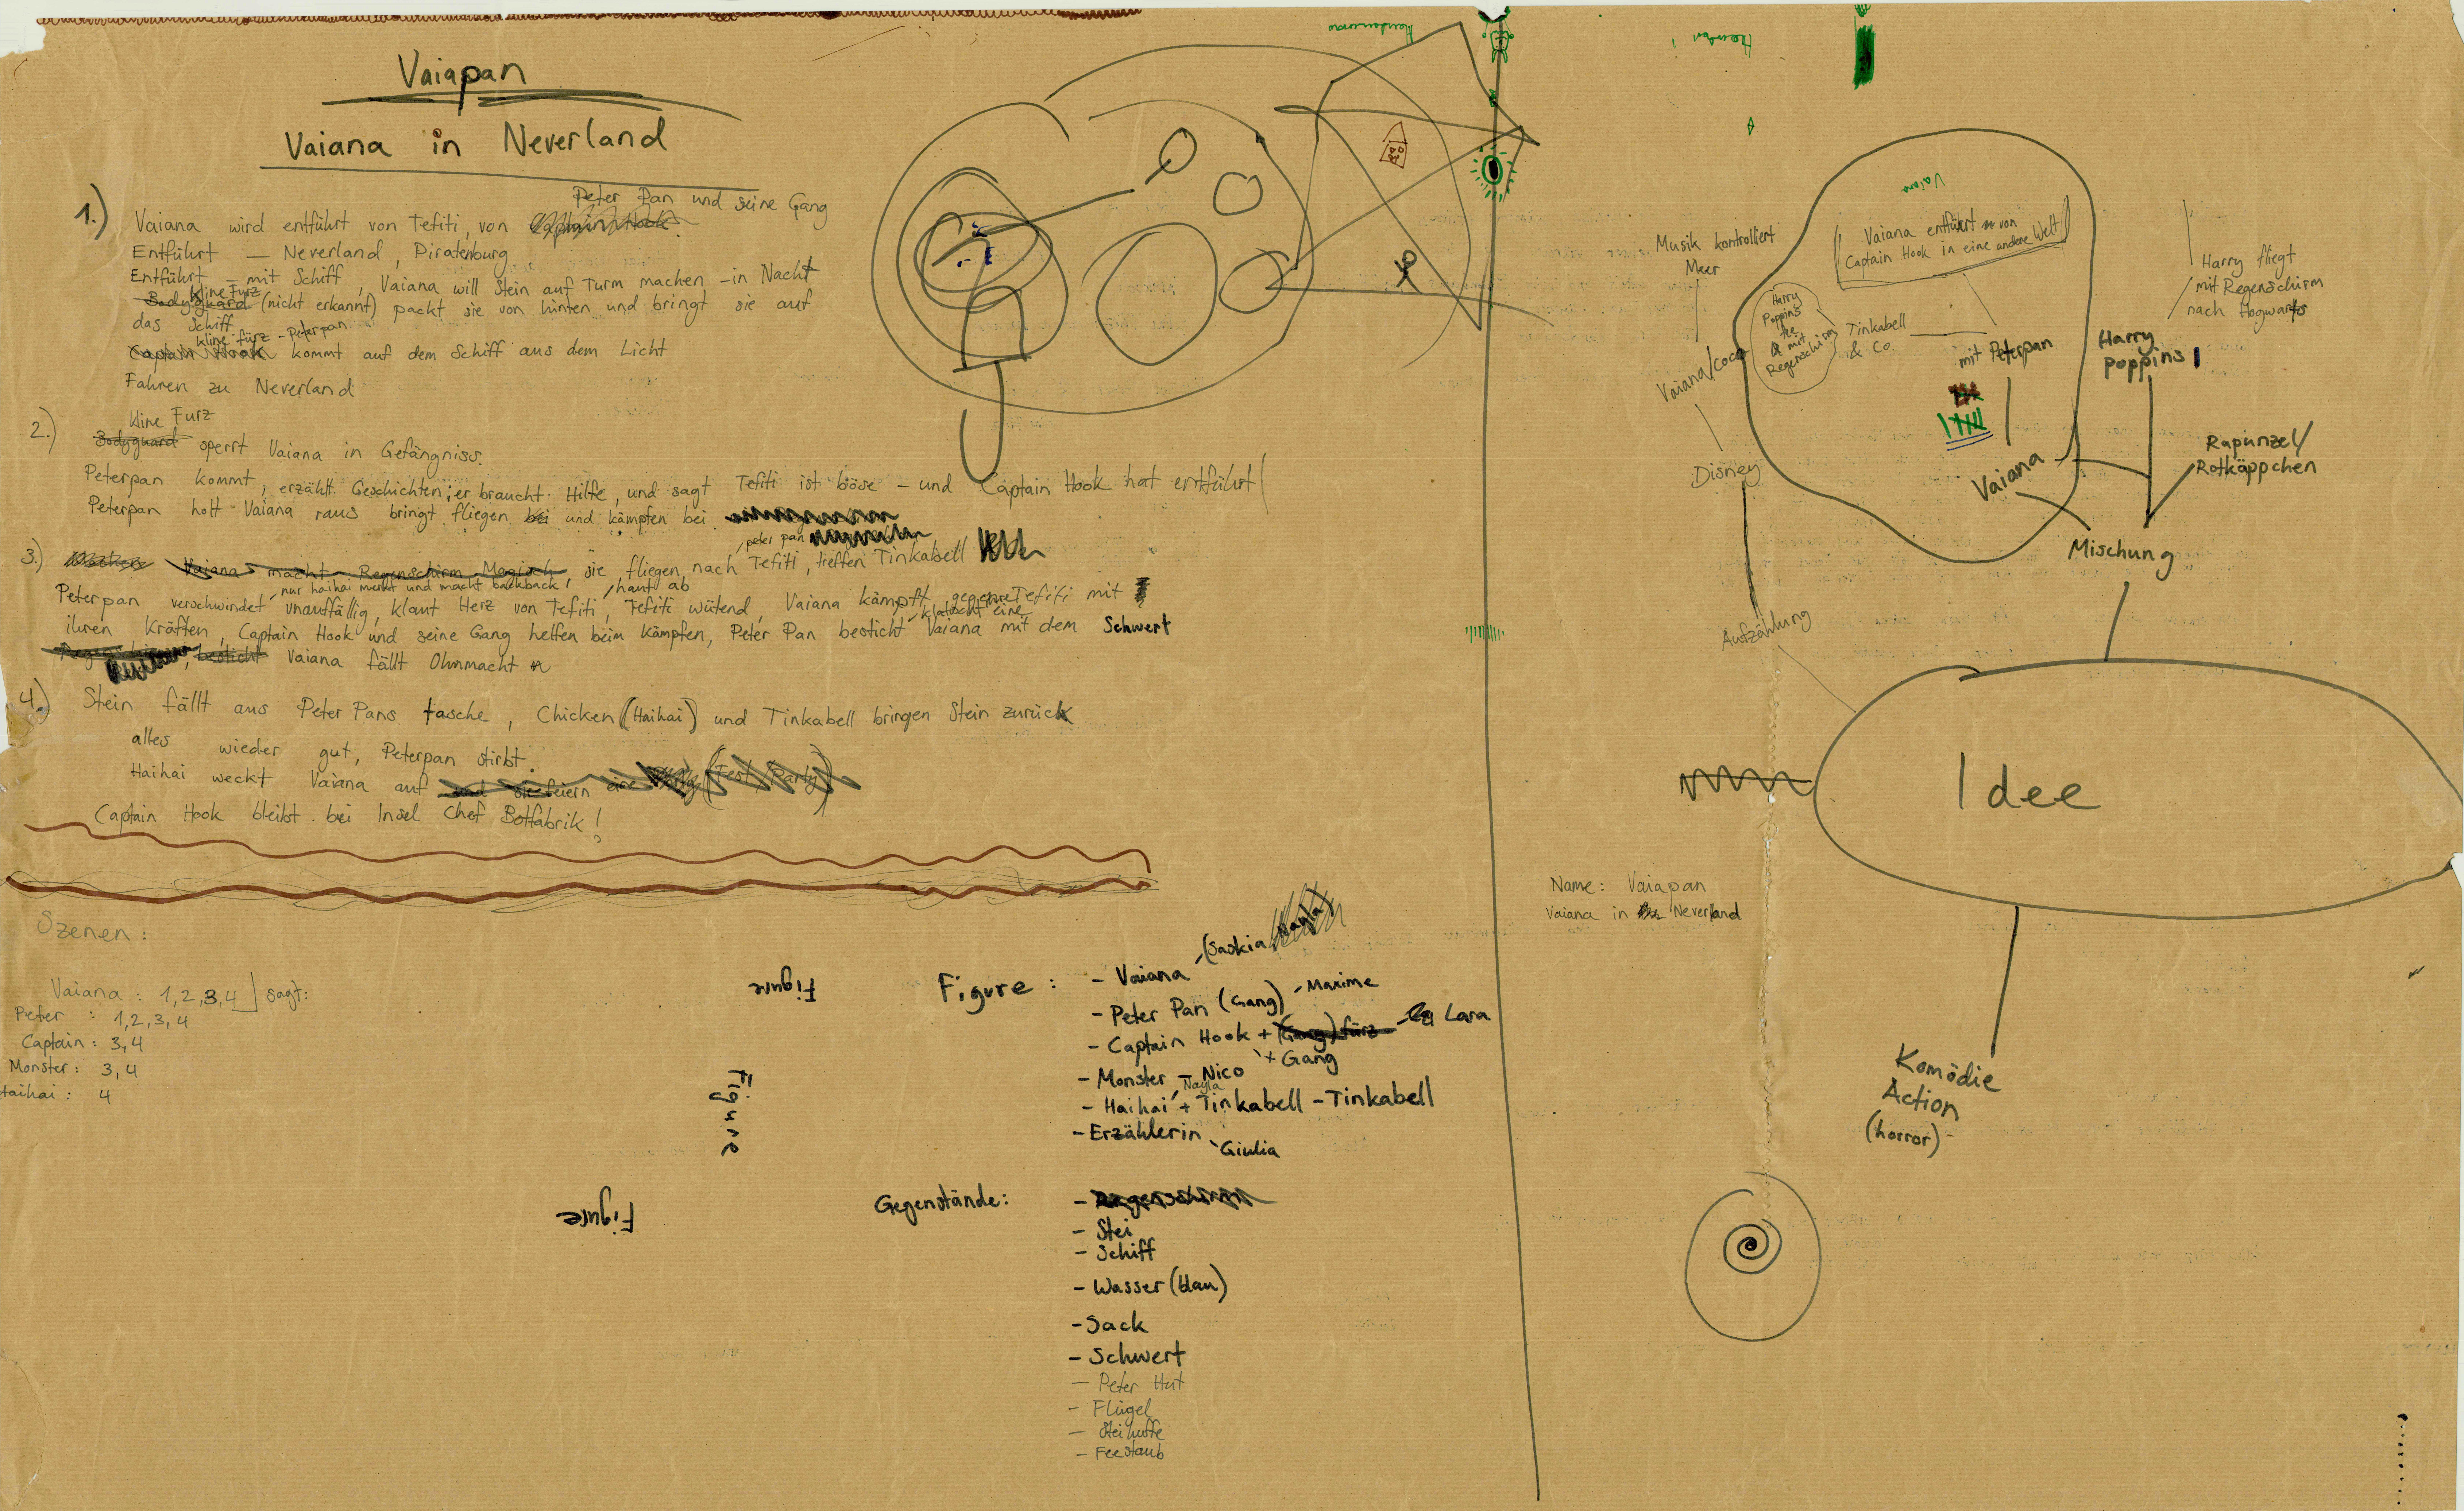 Vaiapan
Vaiana in Neverland
1.)
Peter Pan und seine Gang
Vaiana wird entführt von Tefiti, von Captain Hook.
Entführt — Neverland, Piratenburg
Entführt – mit Schiff, Vaiana will Stein auf Turm machen – in Nacht
kline Furz
Bodyguard (nicht erkannt) packt sie von hinten und bringt sie auf
das Schiff
kline furz - Peterpan
Captain Hook kommt auf dem Schiff aus dem Licht
Fahren zu Neverland
2.)
kline Furz
Bodyguard sperrt Vaiana in Gefängniss.
Peterpan kommt, erzählt Geschichten, er braucht Hilfe, und sagt Tefiti ist böse – und Captain Hook hat entführt
Peterpan holt Vaiana raus bringt fliegen bei und kämpfen bei.
peter pan
3.) Vaiana macht Regenschirm Magisch, sie fliegen nach Tefiti, treffen Tinkabell
nur haihai merkt und macht backback
haut ab
Peterpan verschwindet unauffällig, klaut Herz von Tefiti, Tefiti wütend, Vaiana kämpft gegen Tefiti mit
klatscht eine
ihren Kräften, Captain Hook und seine Gang helfen beim kämpfen, Peter Pan besticht Vaiana mit dem Schwert
besticht Vaiana fällt Ohnmacht
4.) Stein fällt aus Peter Pans tasche, Chicken (Haihai) und Tinkabell bringen Stein zurück
alles wieder gut, Peterpan stirbt.
Haihai weckt Vaiana auf und sie feiern eine Party (Fest, Party)
Captain Hook bleibt bei Insel Chef Botfabrik!
Szenen:
Vaiana : 1,2,3,4 ] sagt:
Peter : 1,2,3,4
Captain : 3,4
Monster : 3,4
Haihai : 4
Figure
Figure
Figure
Figure :
- Vaiana - (Saskia, Nayla)
- Peter Pan (Gang) - Maxime
- Captain Hook + (Gang) fürz - Lara
+ Gang
- Monster - Nico
Nayla
- Haihai + Tinkabell - Tinkabell
- Erzählerin
Giulia
Gegenstände:
- Regenschirm
- Stei
- Schiff
- Wasser (blau)
- Sack
- Schwert
- Peter Hut
- Flügel
- Feestaub
Vaiana
Vaiana entführt von
Captain Hook in eine andere Welt
Musik kontrolliert
Meer
Harry
Poppins
fee
mit
Regenschirm
Tinkabell
& Co.
mit Peterpan
Harry fliegt
mit Regenschirm
nach Hogwarts
Harry
Poppins
Vaiana/Coco
Disney
Vaiana
Rapunzel/
Rotkäppchen
Mischung
Aufzählung
Idee
Name: Vaiapan
Vaiana in Neverland
Komödie
Action
(horror)